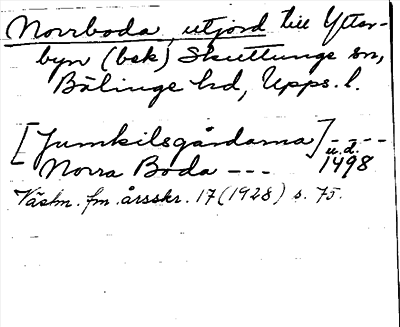 Norrboda, utjord till Ytter-
byn (bsk) Skuttunge sn,
Bälinge hd, Upps. l.
[Jumkilsgårdarna] - - - -
u.d.
Norra Boda - - - 1498
Västm. fm. årsskr. 17 (1928) s. 75.